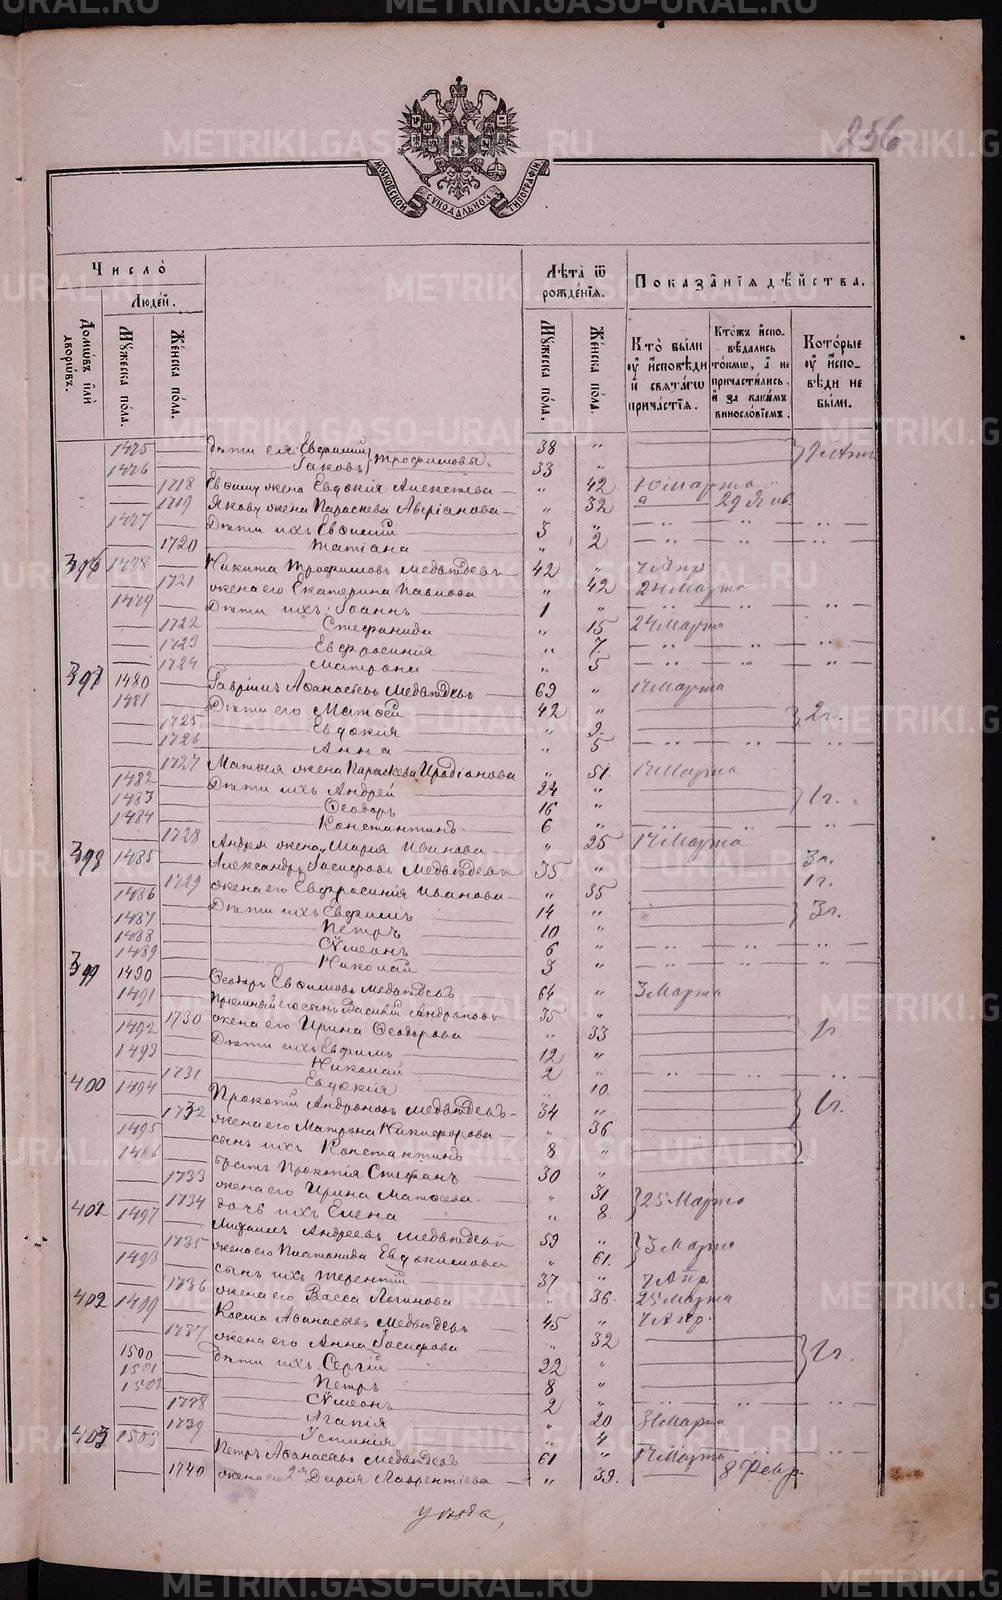 256
МОСКОВСКОЙ СѴНОДАЛЬНОЙ ТИПОГРАФІИ
Число̀
Людей.
Домѡвъ, илѝ дворѡвъ.
Мꙋжеска пола.
Же́нска пола.
Лѣта̀ ѿ рожде́нїѧ.
Мꙋжеска пола.
Же́нска пола.
Показа̑нїѧ дѣ́йства.
Кто̀ были ᲂу҆ и҆сповѣди и҆ свѧта́гѡ прича́стїѧ.
Кто́жъ и҆спо-вѣдались то́кмѡ, а҆ не причасти́лись, и҆ за каки́мъ винослові́емъ.
Кото́рые ᲂу҆ и҆спо-вѣди не были.
1475 дѣти ея: Евфимій 38 "
1476 Іаковъ } Трофимовы. 33 "
1718 Евфимія жена Евдокія Алексѣева " 42 10 Марта
1719 Якова жена Параскева Аверіанова " 32 29
1477 Дѣти ихъ Евфимій 3 "
1720 Татіана " 2
396 1478 Никита Трофимовъ Медвѣдевъ 42 " 7 Апр
1721 жена его Екатерина Павлова " 42 24 Марта
1479 Дѣти ихъ: Іоаннъ 1 "
1722 Стефанида " 15 24 Марта
1723 Евфросинія " 7
1724 Матрона " 5
397 1480 Гавріилъ Аѳанасьевъ Медвѣдевъ 69 " 14 Марта
1481 Дѣти его Матѳей 42 " 2 г.
1725 Евдокія " 9
1726 Анна " 5
1727 Матѳея жена Параскева Иродіонова " 51 14 Марта
1482 Дѣти ихъ Андрей 24 "
1483 Ѳеодоръ 16 " 1 г.
1484 Константинъ 6 "
1728 Андрея жена Марія Иванова " 25 14 Марта
398 1485 Александръ Іосифовъ Медвѣдевъ 35 " 3 г.
1729 жена его Евфросинія Иванова " 35 1 г.
1486 Дѣти ихъ Евфимъ 14 " 3 г.
1487 Петръ 10 "
1488 Сѵмеонъ 6 "
1489 Николай 3 "
399 1490 Ѳеодоръ Евфимовъ Медвѣдевъ 64 " 3 Марта
1491 Пріемный его сынъ Василій Андроновъ 35 "
1730 жена его Ирина Ѳеодорова " 33
1492 Дѣти ихъ Евфимъ 12 "
1493 Николай 2 "
1731 Евдокія " 10
400 1494 Прокопій Андроновъ Медвѣдевъ 34 " 1 г.
1732 жена его Матрона Никифорова " 36
1495 сынъ ихъ Константинъ 8 "
1496 братъ Прокопія Стефанъ 30 "
1733 жена его Ирина Матѳеева " 31 } 25 Марта
1734 дочь ихъ Елена " 8
401 1497 Михаилъ Андреевъ Медвѣдевъ 59 " } 3 Марта
1735 жена его Платонида Евдокимова " 61
1498 сынъ ихъ Терентій 37 " 7 Апр
1736 жена его Васса Логинова " 36 25 Марта
402 1499 Косма Аѳанасьевъ Медвѣдевъ 45 " 7 Апр.
1737 жена его Анна Іосифова " 32
1500 дѣти ихъ Сергій 22 "
1501 Петръ 8 "
1502 Сѵмеонъ 2 "
1738 Агапія " 20 31 Марта
1739 Устинія " 4
403 1503 Петръ Аѳанасьевъ Медвѣдевъ 61 " 14 Марта
1740 жена его 2я Дарія Лаврентіева " 39. 8 Февр.
METRIKI.GASO-URAL.RU